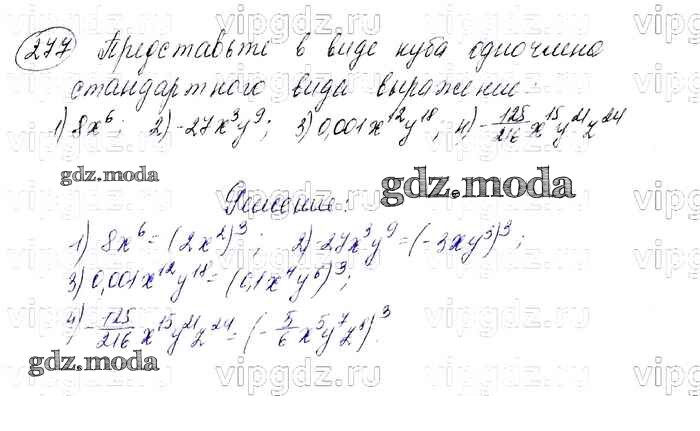 277 Представьте в виде куба одночлена
стандартного вида выражение:
1) 8x⁶; 2) -27x³y⁹; 3) 0,001x¹²y¹⁸; 4) -125/216 x¹⁵y²¹z²⁴
gdz.moda
gdz.moda
Решение:
1) 8x⁶ = (2x²)³; 2) -27x³y⁹ = (-3xy³)³;
3) 0,001x¹²y¹⁸ = (0,1x⁴y⁶)³;
4) -125/216 x¹⁵y²¹z²⁴ = (-5/6 x⁵y⁷z⁸)³
gdz.moda
gdz.moda
vipgdz.ru